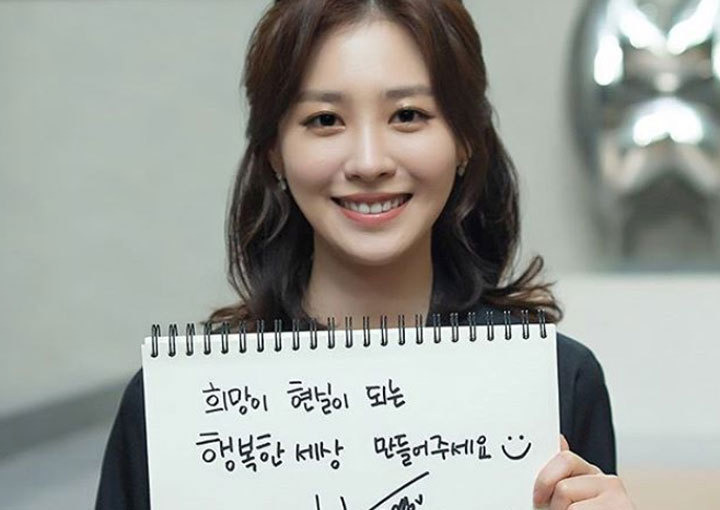 희망이 현실이 되는
행복한 세상 만들어주세요